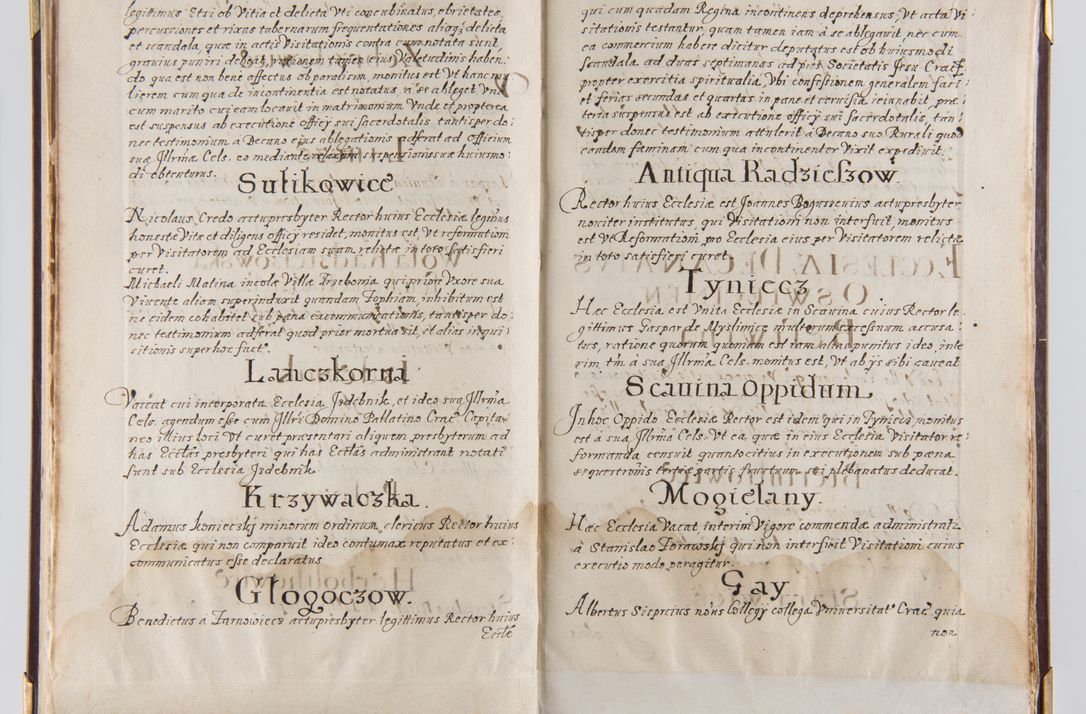 legittimus Etsi ob Vitia et delicta Vti concubinatus, ebrietates
percussiones et rixas tabernarum frequentationes aliaq; delicta
et scandala, quæ in actis Visitationis contra eum notata sunt
grauius puniri debeat, rationem tamen eius Valetudinis haben:
do qua est non bene affectus ob paralisim, monitus est Vt hanc mu
lierem cum qua de incontinentia est notatus, a se ableget Vna
cum marito cui eam locauit in matrimonium Vnde et propterea
est suspensus ab executione officÿ sui sacerdotalis, tantisper do:
nec testimonium a Decano eius ablegationis adferat ad officium
suæ Illrmæ Cels. eo mediante relaxam suspensionis suæ huiusmo:
di obtenturus.
Sulikowice
Nicolaus Credo actu presbyter Rector huius Ecclesiæ legimus
honestæ Vitæ et diligens officÿ residet, monitus est, Vt reformationi
per Visitatorem ad Ecclesiam suam relictæ in toto satisfieri
curet.
Michaeli Malina incolæ Villæ Trzebonia, qui priore Vxore sua
Viuente aliam superinduxit quandam Sophiam, inhibitum est
ne eidem cohabitet sub pœna excommunicationis, tantisper do:
nec testimonium adferat quod prior mortua sit, et alias inqui:
sitionis super hoc fact
Lanczkorna
Vaccat cui incorporata Ecclesia Jzdebnik, et ideo sua Illrma
Cels. agendum esse cum Illri Domino Pallatino Crac Capita:
neo illius loci Vt curet præsentari aliquem presbyterum ad
has Ecclas presbyteri qui has Ecclas administrant notati
sunt sub Ecclesia Jzdebnik
Krzywaczka.
Adamus Konieczkj minorum ordinum, clericus Rector huius
Ecclesiæ qui non comparuit ideo contumax reputatus et ex:
communicatus esse declaratus
Głogoczow.
Benedictus à Tarnowiecz actu presbyter legittimus Rector huius
Eccle
qui cum quadam Regina incontinens deprehensus, Vt acta Vi
sitationis testantur, quam tamen iam à se ablegauit, nec cum
ea commercium habere dicitur deputatus est ob huiusmodi
scandala ad duas septimanas ad pres Societatis Jesu Crac
propter exercitia spiritualia, Vbi confessionem generalem faci:
et ferias secundas et quartas in pane et ceruisia ieiunabit, præ:
terea suspensus est ab executione officÿ sui sacerdotalis, tan:
tisper donec testimonium attulerit à Decano suo Rurali quod
eandam fæminam cum qua incontinenter Vixit expediuit.
Antiqua Radzieszow.
Rector huius Ecclesiæ est Joannes Bogussenius actu presbyter
nouiter institutus, qui Visitationi non interfuit, monitus
est Vt Reformationi pro Ecclesia eius per Visitatorem relictæ
in toto satisfieri curet
Tyniecz
Hæc Ecclesia est Vnita Ecclesiæ in Scauina cuius Rector le:
gittimus Gaspar de Myslimice multorum excessuum accusa:
tus, ratione quorum quoniam est iam alias punitus ideo, inte
rim tm à sua Illrma Cels. monitus est, Vt ab ÿs sibi caueat
Scauina Oppidum
In hoc Oppido Ecclesiæ Rector est idem qui in Tyniecz, monitus
est à sua Illrma Cels. Vt ea, quæ in eius Ecclesia Visitator re:
formanda censuit quantocitius in executionem sub pæna
sequestronis tertiæ partis fructuum sui plebanatus deducat.
Mogielany.
Hæc Ecclesia Vacat, interim Vigore commendæ administratr
à Stanislao Torawskj qui non interfuit Visitationi cuius
executio modo peragitur.
Gay
Albertus Siepicius nous Collegÿ collega Vniuersitats Crac quia
non